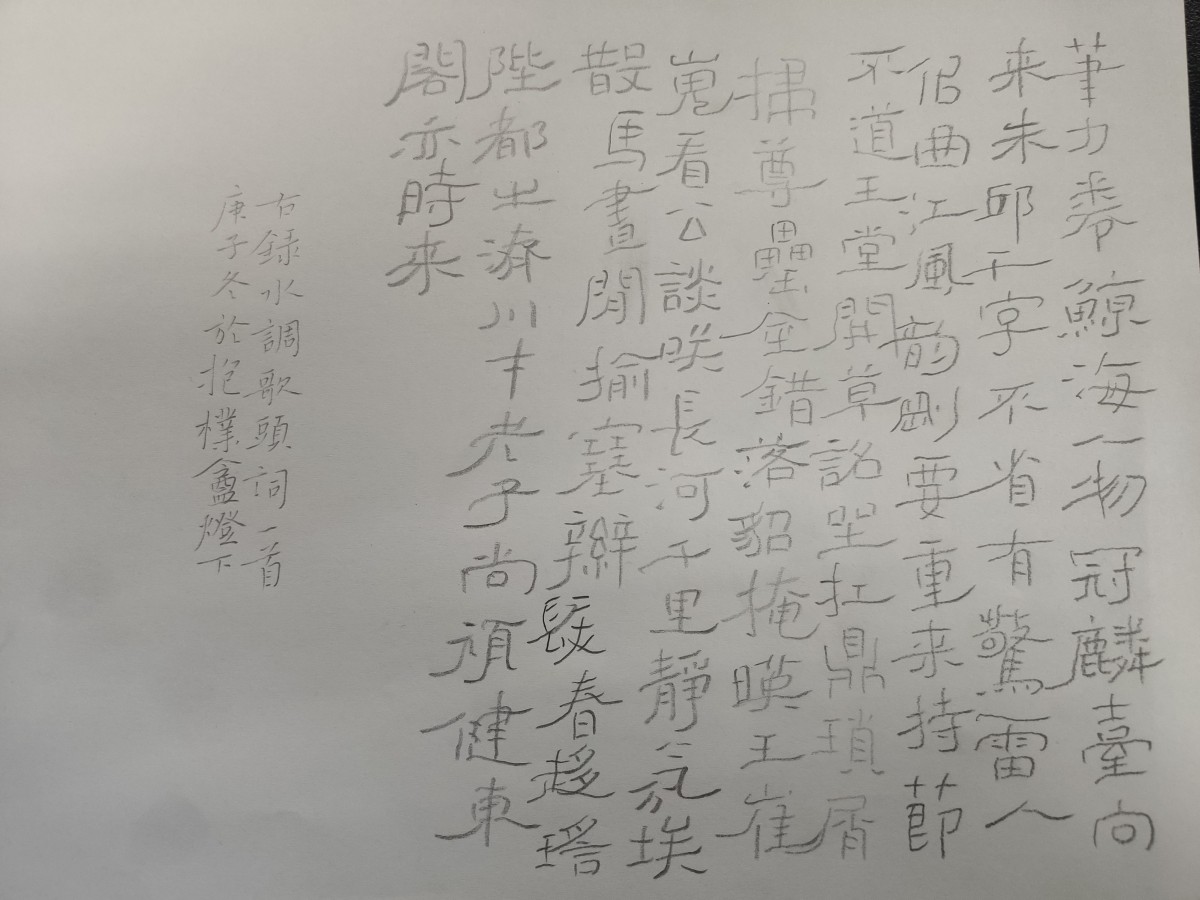 筆力卷鯨海人物冠麟臺向
来朱邸千字不省有驚雷人
佀曲江風韵剛要重来持節
不道玉堂開草詔坐扛鼎瑣屑
掃尊罍金錯落貂掩暎玉崔
嵬看公談咲長河千里靜氛埃
散馬晝閒揄塞辮髮春趍瑶
陛都出濟川才老子尚頑健東
閣亦時来
右録水調歌頭詞一首
庚子冬於抱樸盦燈下